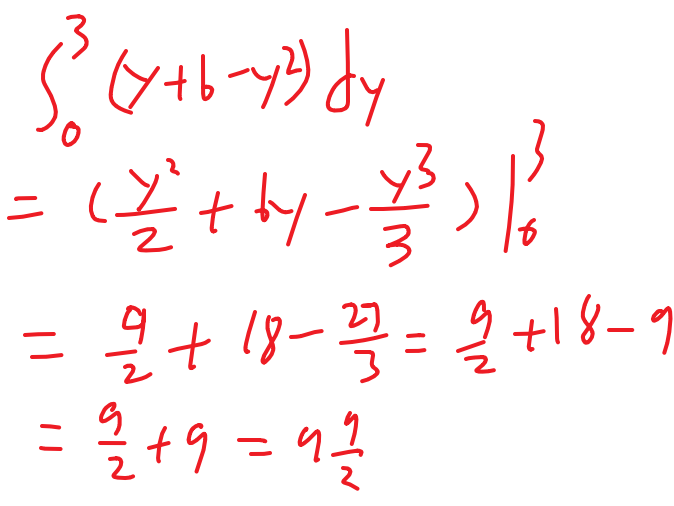 ∫₀³ (y+6−y²) dy
= (y²/2 + 6y − y³/3) |₀³
= 9/2 + 18 − 27/3 = 9/2 + 18 − 9
= 9/2 + 9 = 9 9/2